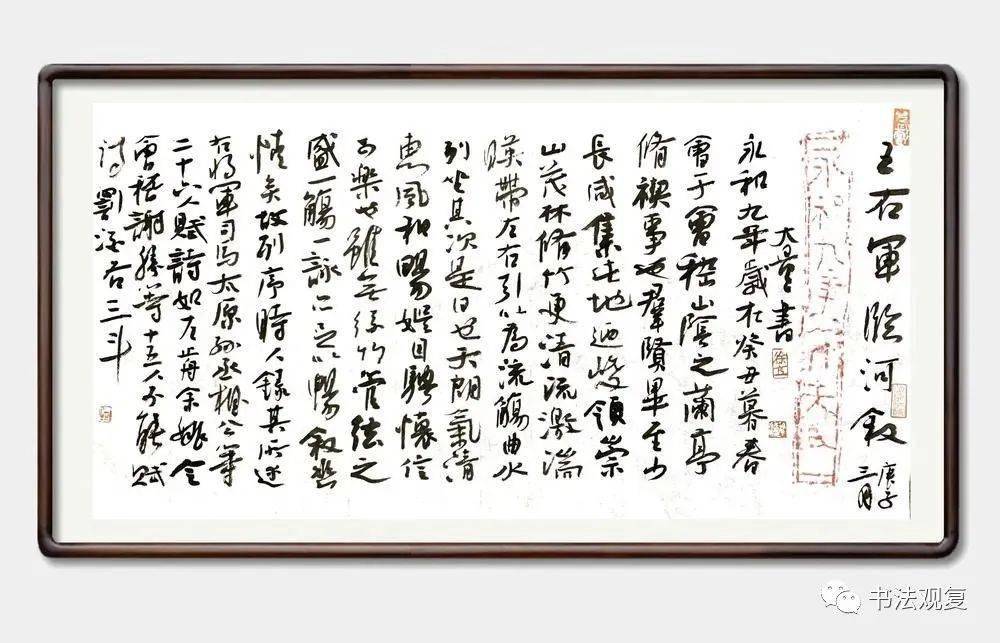 王右軍臨河敘
庚子
三月
書
永和九年歲在癸丑暮春
會于會稽山陰之蘭亭
脩禊事也羣賢畢至少
長咸集此地迺峻領崇
山茂林脩竹更清流激湍
暎帶左右引以為流觴曲水
列坐其次是日也天朗氣清
惠風和暢娛目騁懷信
可樂也雖無絲竹管弦之
盛一觴一詠亦足以暢敘幽
情矣故列序時人錄其所述
右將軍司馬太原孫丞相公等
二十六人賦詩如左前余姚令
會稽謝勝等十五人不能賦
詩罰酒各三斗
书法观复